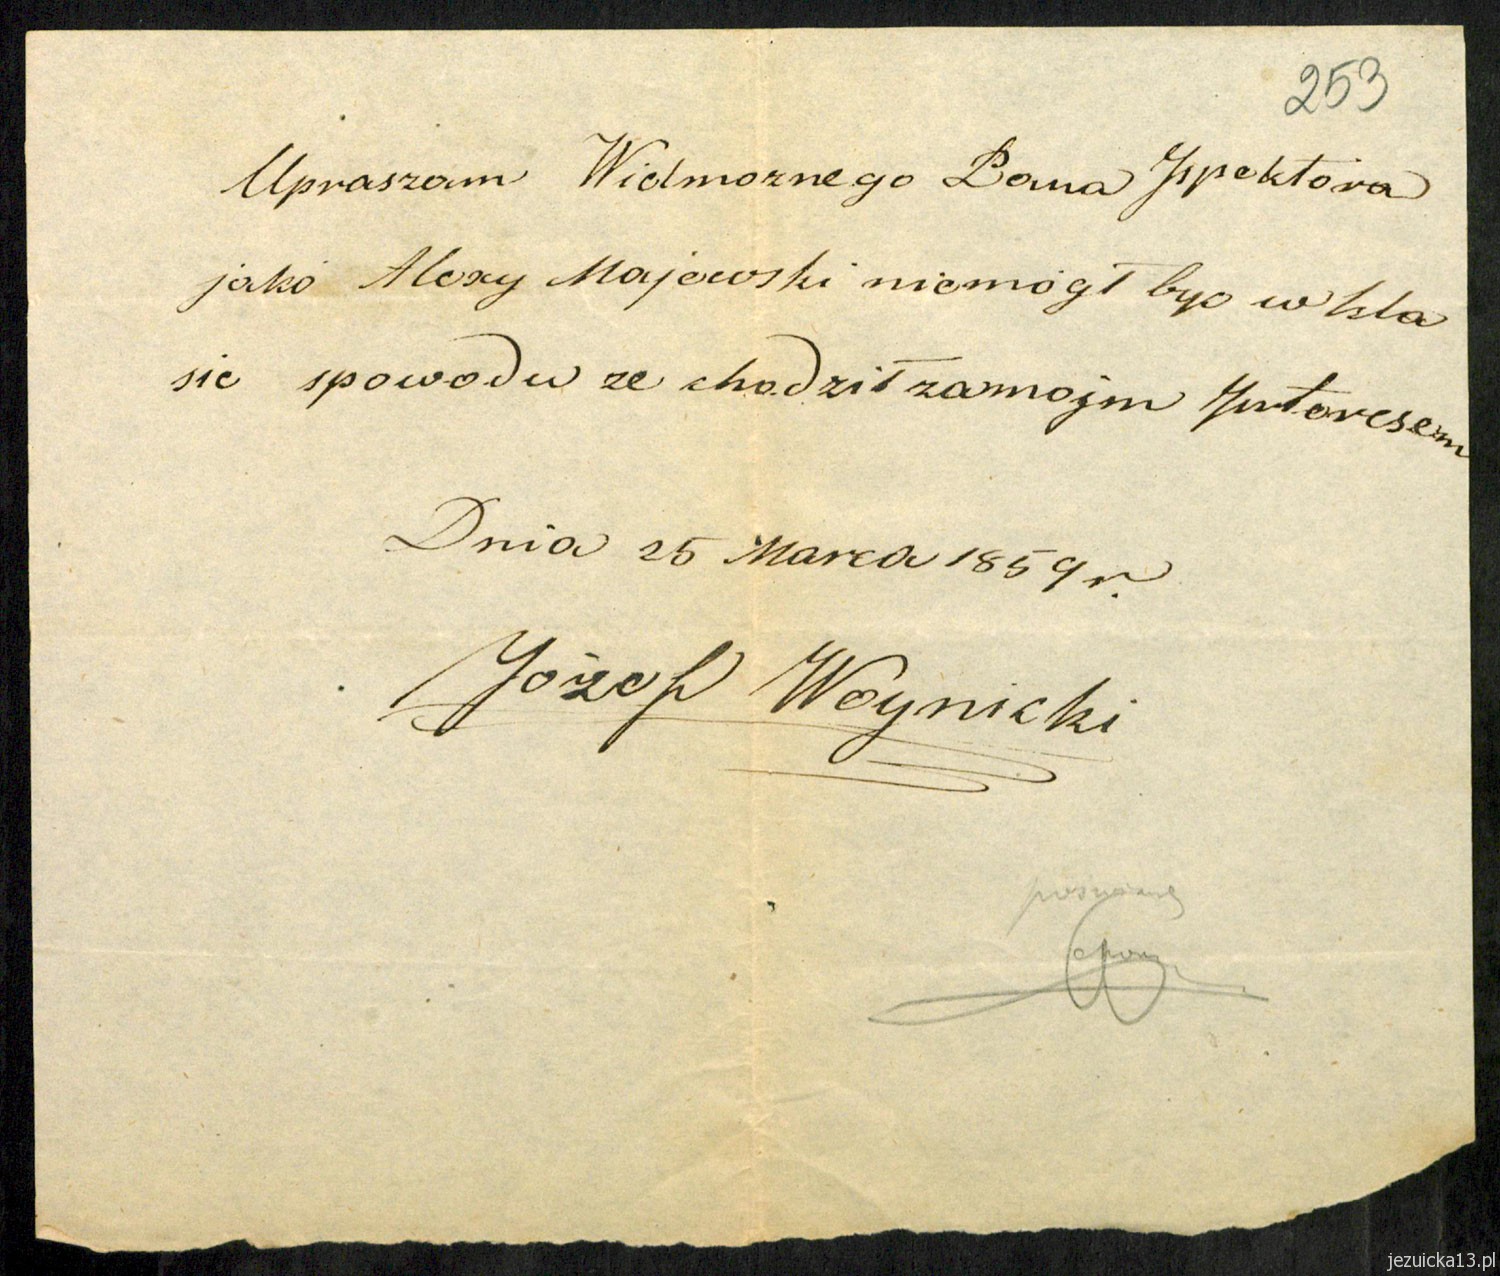 253
Upraszam Widmoznego Pana Jspektora
jako Alexy Majewski niemógł byc w kla
sie spowodu ze chodził zamojm Jnteresem
Dnia 25 Marca 1859 r.
Józef Woynicki
jezuicka13.pl